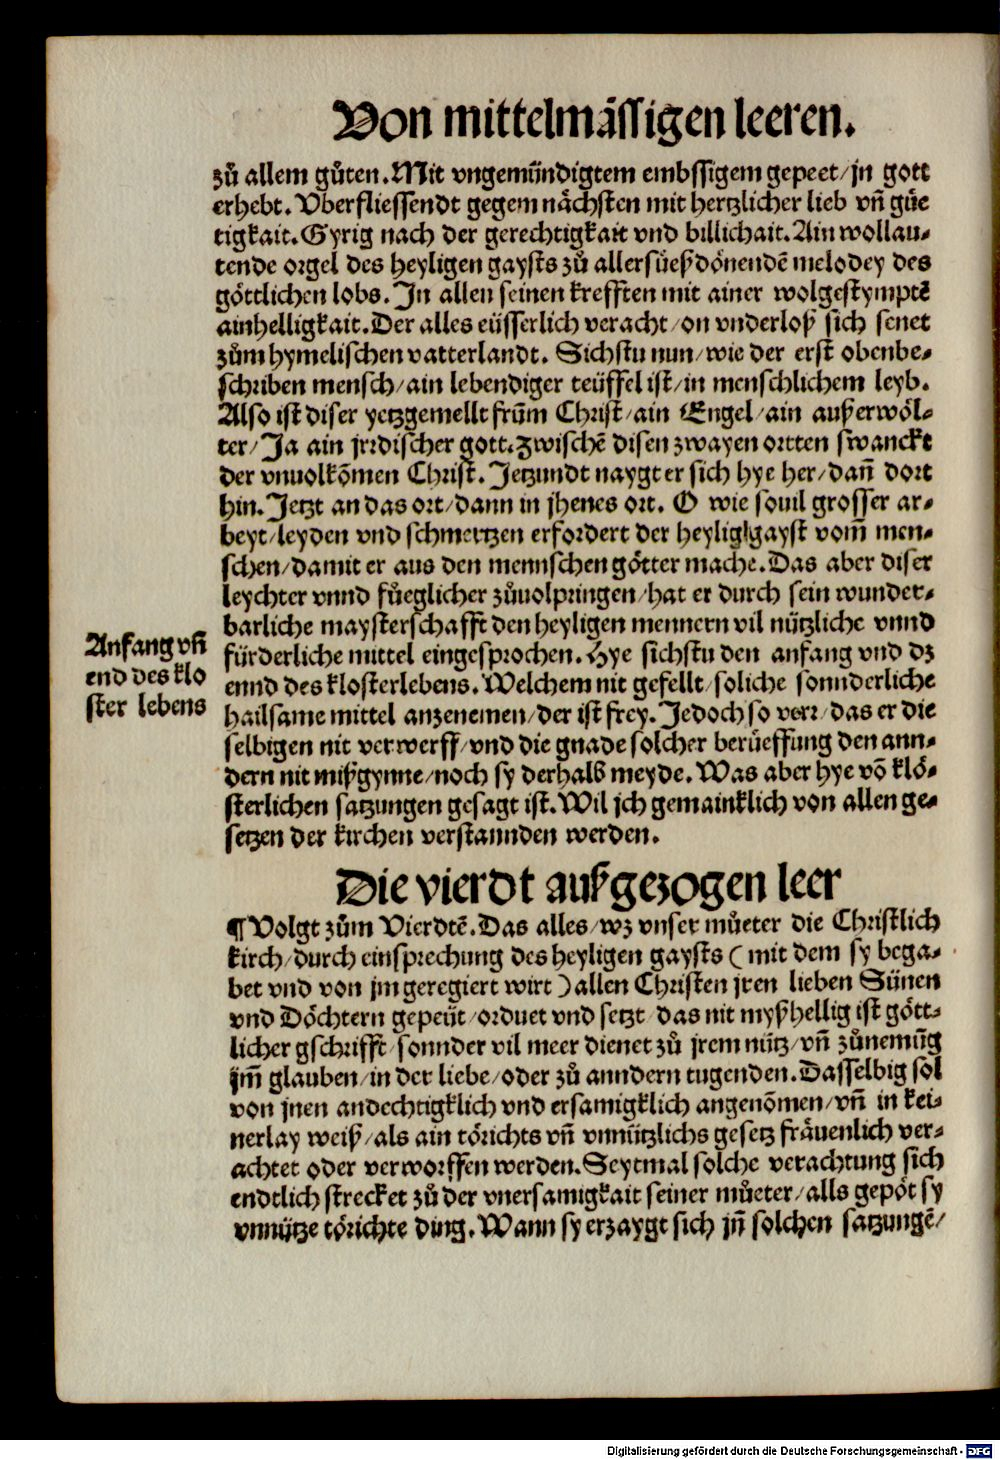 Von mittelmässigen leeren.
zů allem gůten. Mit vngemün̄digtem embssigem gepeet/ jn gott
erhebt. Vberfliessendt gegem nächsten mit hertzlicher lieb vn̄ güe
tigkait. Gyrig nach der gerechtigkait vnd billichait. Ain wollau-
tende orgel des heyligen gaysts zů allersüeß dönendē melodey des
göttlichen lobs. Jn allen seinen krefften mit ainer wolgestymptē
ainhelligkait. Der alles eüsserlich veracht/ on vnderloß sich senet
zům hymelischen vatterlandt. Sichstu nun/ wie der erst obenbe-
schriben mensch/ ain lebendiger teüffel ist/ in menschlichem leyb.
Also ist diser yetzgemellt frům̄ Christ/ ain Engel/ ain außerwöl-
ter/ Ja ain jrrdischer gott. Zwischē disen zwayen ortten swanckt
der vnuolkōmen Christ. Jetzundt naygt er sich hye her/ dan̄ dort
hin. Jetzt an das ort/ dann in jhenes ort. O wie souil grosser ar-
beyt/ leyden vnd schmertzen erfordert der heylig gayst vom̄ men-
schen/ damit er aus den mennschen götter mache. Das aber diser
leychter vnnd füeglicher zůuolpringen/ hat er durch sein wunder-
barliche maysterschafft den heyligen mennern vil nützliche vnnd
fürderliche mittel eingesprochen. Hye sichstu den anfang vnd dz
ennd des klosterlebens. Welchem nit gefellt/ soliche sonnderliche
hailsame mittel anzenemen/ der ist frey. Jedoch so verr/ das er die
selbigen nit verwerff/ vnd die gnade solcher berüeffung den ann-
dern nit mißgynne/ noch sy derhalb meyde. Was aber hye vō klö-
sterlichen satzungen gesagt ist. Wil jch gemainklich von allen ge-
setzen der kirchen verstannden werden.
Anfang vn̄
end des klo
ster lebens
Die vierdt außgezogen leer
¶ Volgt zům Vierdtē. Das alles/ wz vnser můeter die Christlich
kirch/ durch einsprechung des heyligen gaysts ( mit dem sy bega-
bet vnd von jm geregiert wirt ) allen Christen jren lieben Sünen
vnd Döchtern gepeüt/ orduet vnd setzt/ das nit myßhellig ist gött-
licher gschrifft/ sonnder vil meer dienet zů jrem nütz/ vn̄ zůnemūg
jm̄ glauben/ in der liebe/ oder zů anndern tugenden. Dasselbig sol
von jnen andechtigklich vnd ersamigklich angenōmen/ vn̄ in kei-
nerlay weiß/ als ain törichts vn̄ vnnützlichs gesetz fräuenlich ver-
achtet oder verworffen werden. Seytmal solche verachtung sich
endtlich strecket zů der vnersamigkait seiner můeter/ alls gepöt sy
vnnütze törichte ding. Wann sy erzaygt sich jn̄ solchen satzungē/
Digitalisierung gefördert durch die Deutsche Forschungsgemeinschaft - DFG